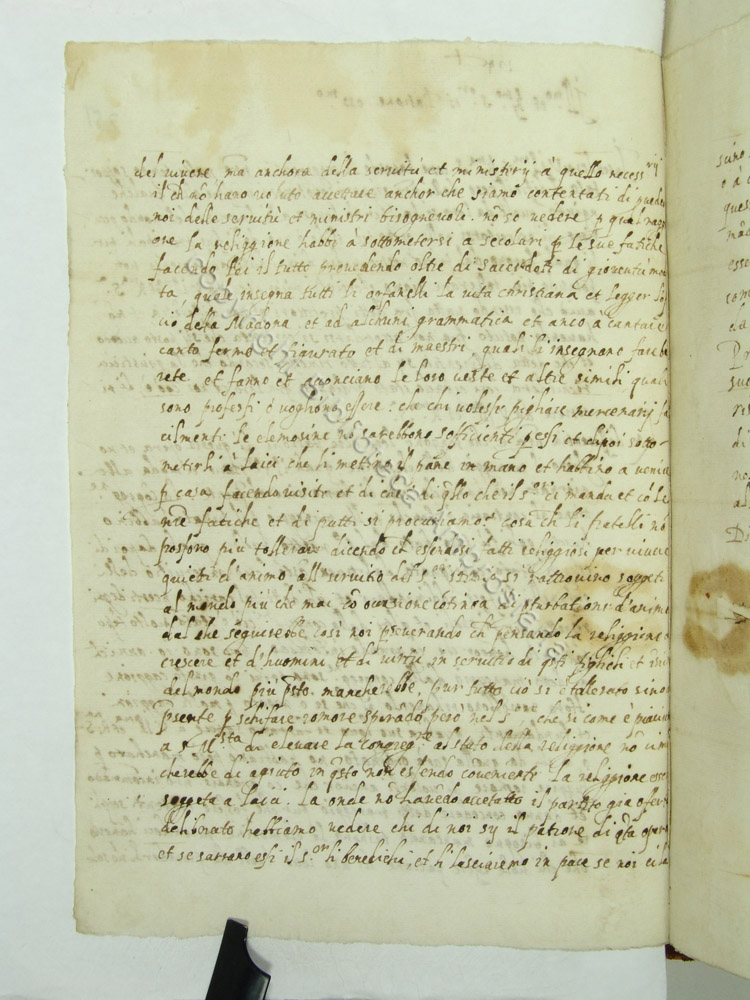 del vivere ma anchora della servitù et ministerij à quello necess rij
il ch nõ hano voluto accettare anchor che siamo contentati di
noi delle servitù et ministri bisognevoli. nõ se vedere p qual rag
one la religgione habbi à sottomettersi a secolari p le sue fatiche
facendo lei il tutto provedendo oltre di sacerdoti di gioventù mo
ta, quale insegna tutti li orfanelli la vita christiana et legger
cio della Madona et ad alchuni grammatica et anco à cantare
canto fermo et figurato et di maestri, quali li insegnano fare
rete, et fanno et aconciano le loro veste et altre simili quali
sono professi ò vogliono essere: che chi volesse pigliare mercenarij fa
cilmente le elemosine nõ sarebbono sofficienti p essi et dipoi sotto-
meterli à laici che li mettino il pane in mano et habbino a venire
p casa facendo visite et di cio di qllo che il s.or ci manda et cõ le
nre fatiche et de putti si procuriamo: cosa ch li fratelli nõ
possono più tollerare dicendo ch essendosi fatti religgiosi per vivere
quieti d'animo all servitio del s.or si rattrovino soggeti
al mondo più che mai cõ occasione cõtinua di pturbatione d'animo
dal che seguirebbe così noi pseverando ch pensando la religgione
crescere et d'huomini et di virtù in servitio di et
del mondo più psto mancherebbe, pur tutto ciò si è tollerato sino
psente p schifare romore sperãdo però nel s.ore, che si come è piaciuto
a S. S.sta di elevare la congreg.ne al stato della religgione nõ
cherebbe di agiuto in qsto nõ essendo coveniente la religgione esser
soggeta a laici. la onde nõ havẽdo accettatto il partito gia
deliborato habbiamo vedere chi di noi sij il patrone di qsta opera
et se sarrano essi il s.or li benedichi, et li lasciaremo in pace se noi ci